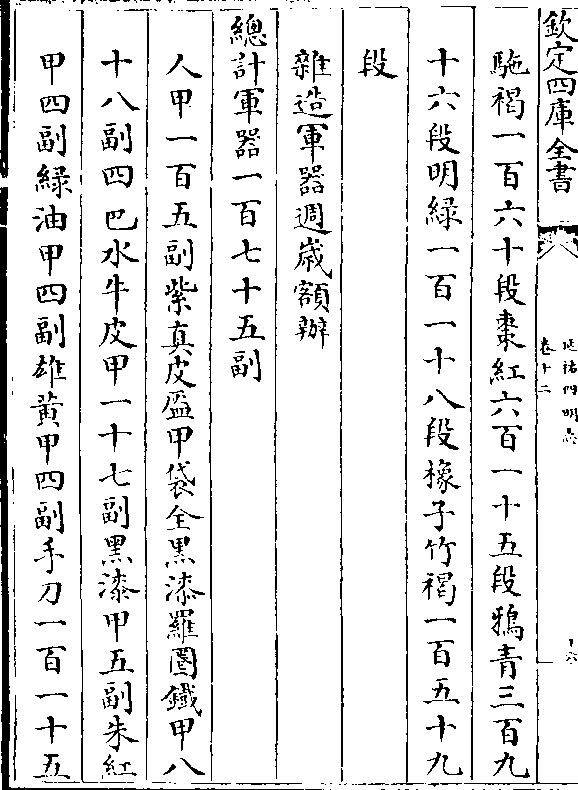 欽定四庫全書
延祐四明志
卷十二
十六
駞褐一百六十段棗紅六百一十五段鴉青三百九
十六段明綠一百一十八段橡子竹褐一百五十九
段
雜造軍器週歲額辦
總計軍器一百七十五副
人甲一百五副紫真皮盔甲袋全黑漆羅圈鐵甲八
十八副四巴水牛皮甲一十七副黑漆甲五副朱紅
甲四副綠油甲四副雄黃甲四副手刀一百一十五